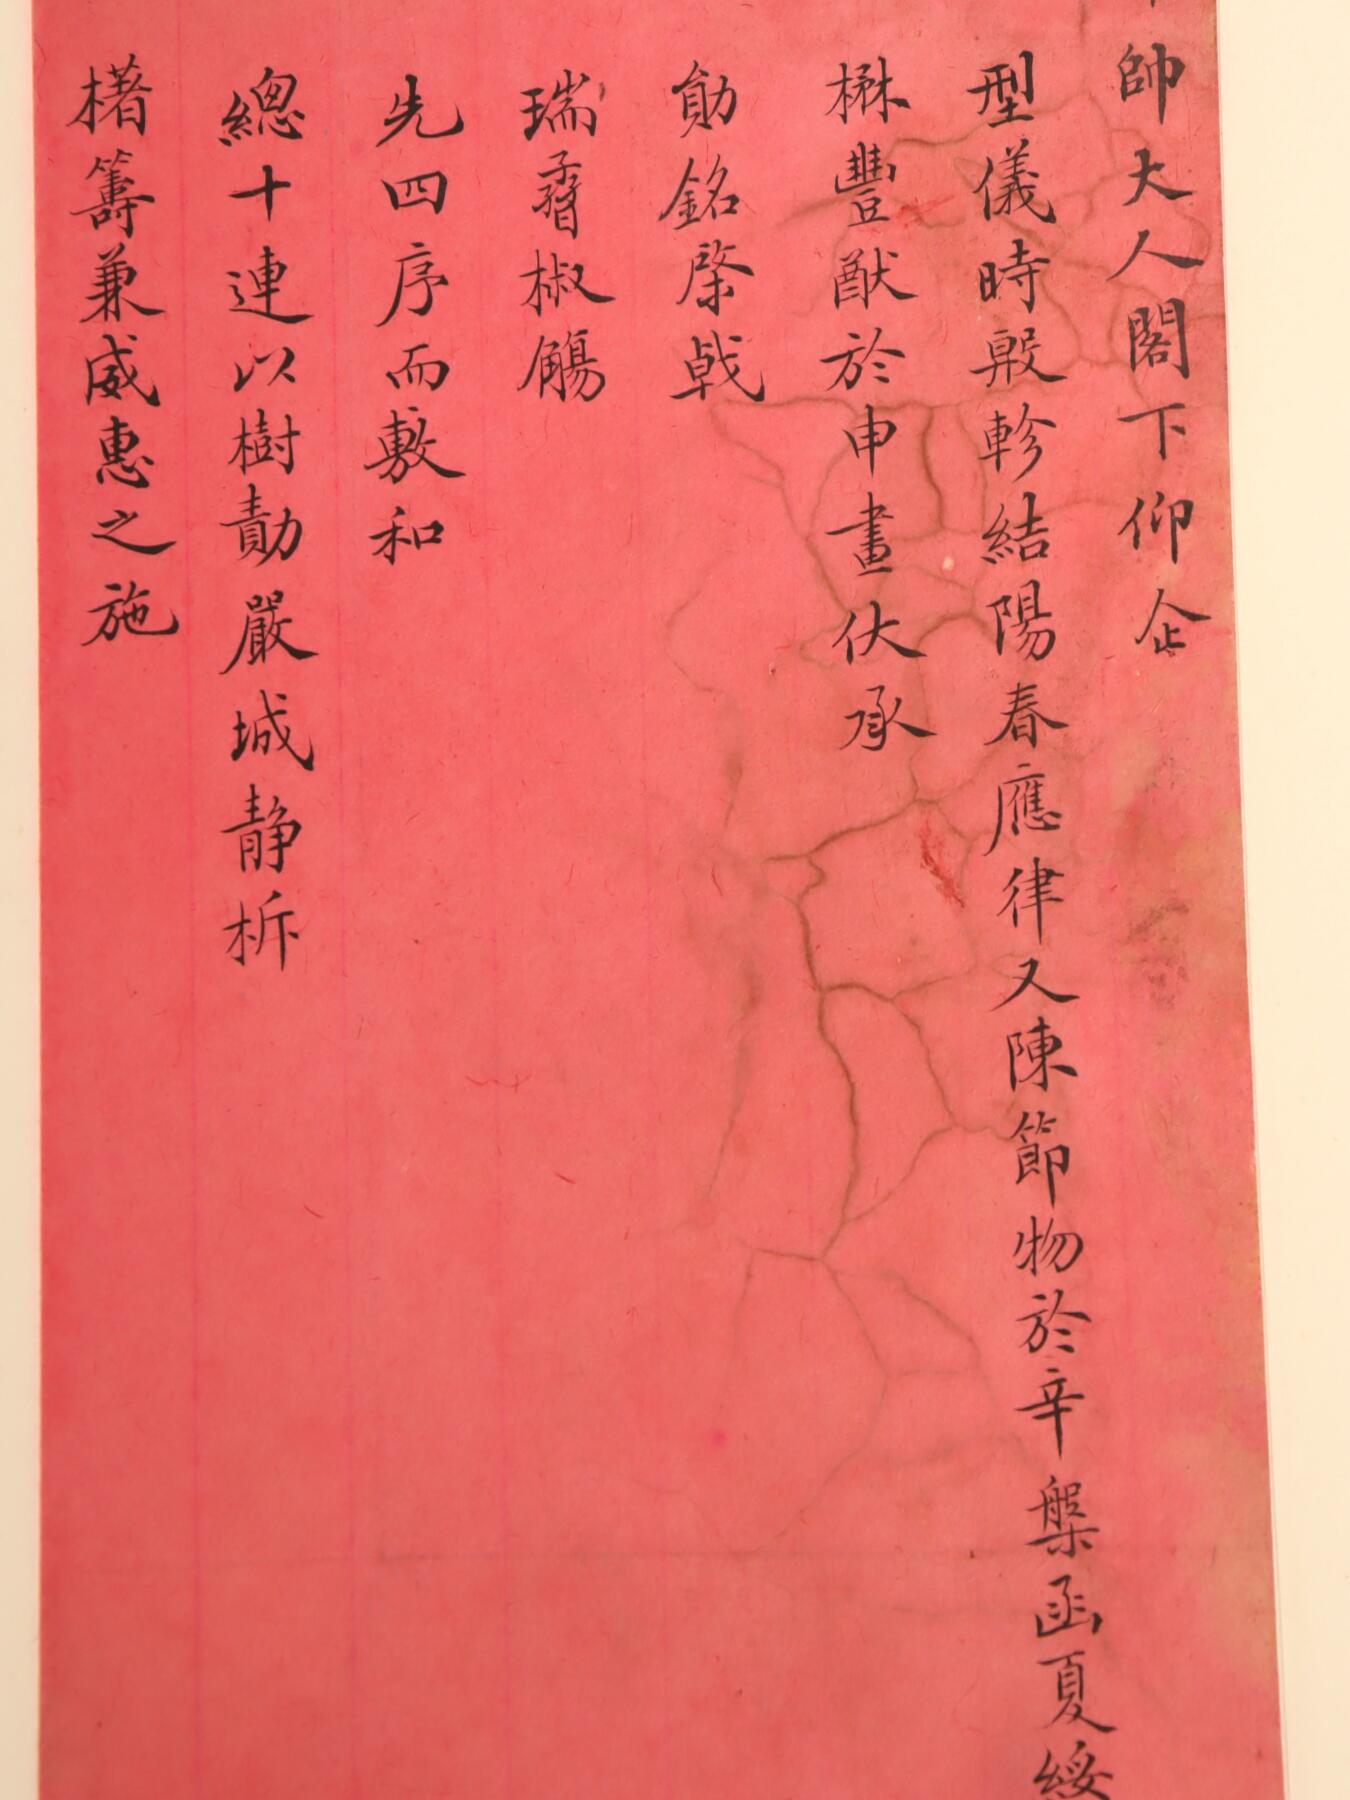 帥大人閣下仰企
型儀時殷軫結陽春應律又陳節物於辛槃函夏綏
楙豐猷於申畫伏承
勛銘棨戟
瑞孴椒觴
先四序而敷和
總十連以樹勣嚴城静柝
楮籌兼威惠之施